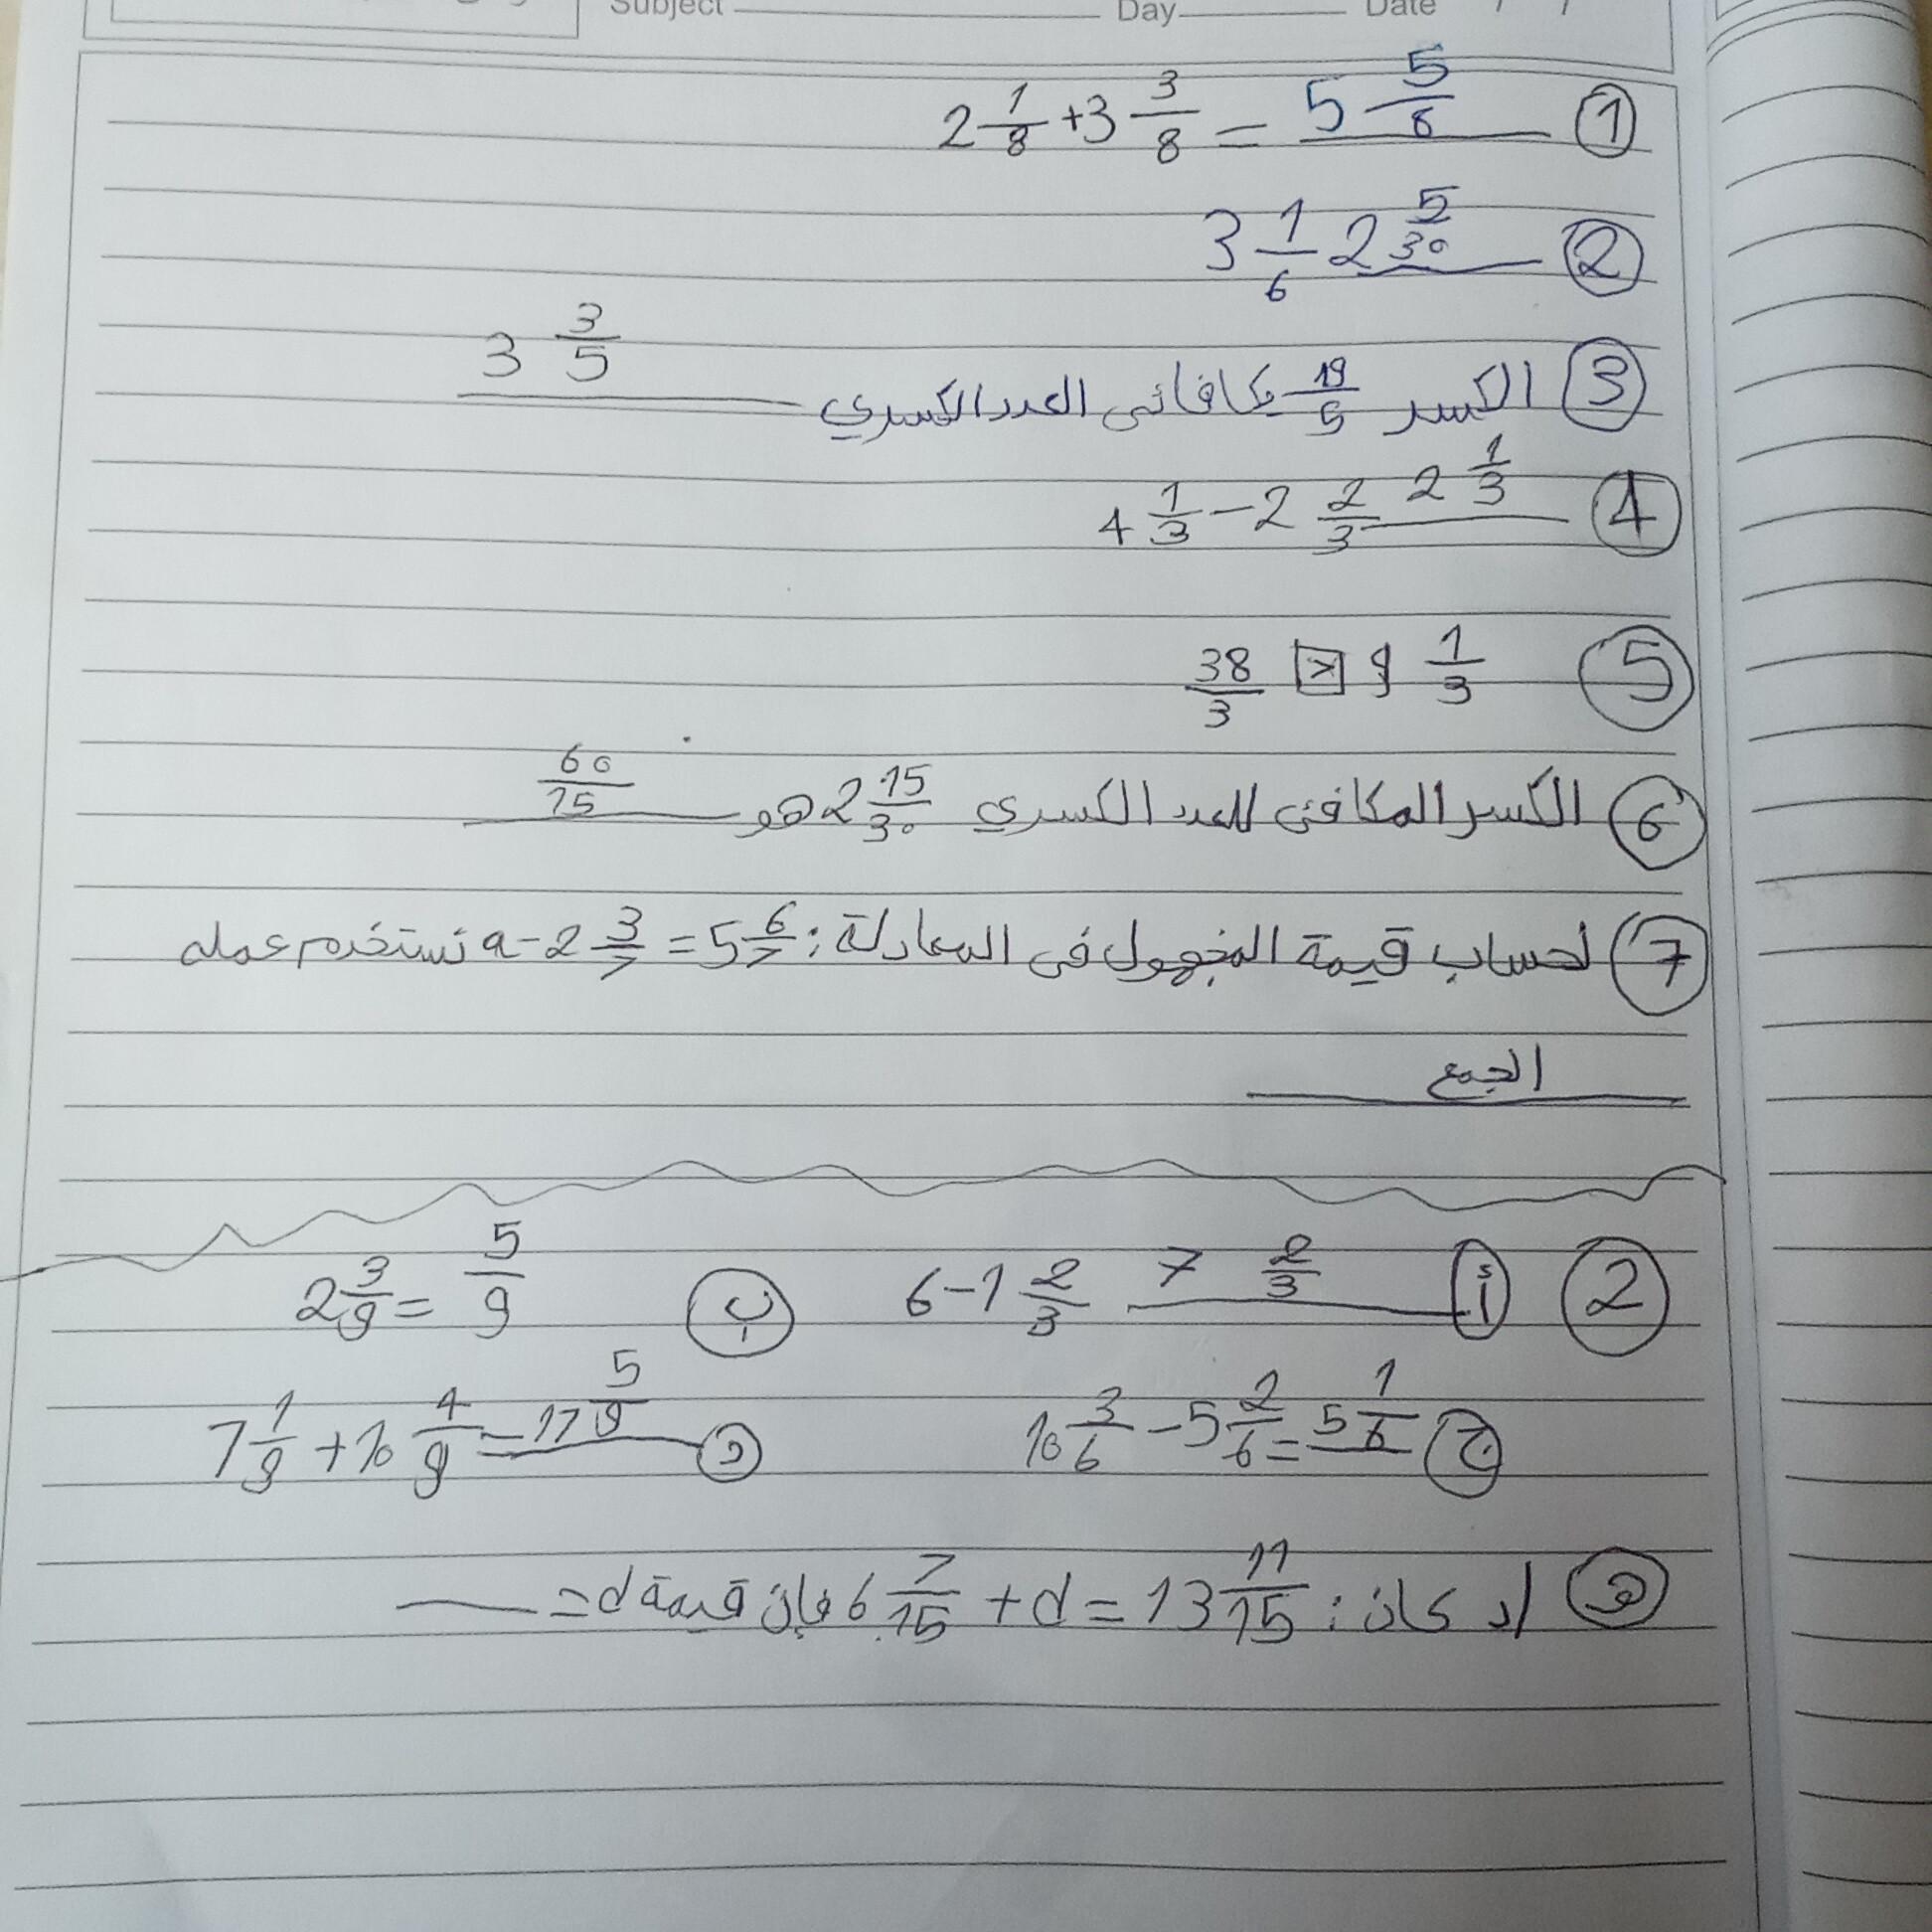 Subject Day Date / /
① 2 1/8 + 3 3/8 = 5 5/8
② 3 1/6 2 5/30
③ الكسر 19/5 يكافئ العدد الكسري 3 3/5
④ 4 1/3 - 2 2/3 2 1/3
⑤ 38/3 > 9 1/3
⑥ الكسر المكافئ للعدد الكسري 2 15/30 هو 60/15
⑦ لحساب قيمة المجهول في المعادلة: a - 2 3/7 = 5 6/7 نستخدم عمله
الجمع
② أ 6 - 1 2/3 7 2/3 ب 2 3/9 = 5/9
ج 10 3/6 - 5 2/6 = 5 1/6 د 7 1/9 + 10 4/9 = 17 5/9
ه اد كان: 6 7/15 + d = 13 11/15 فإن قيمة d =